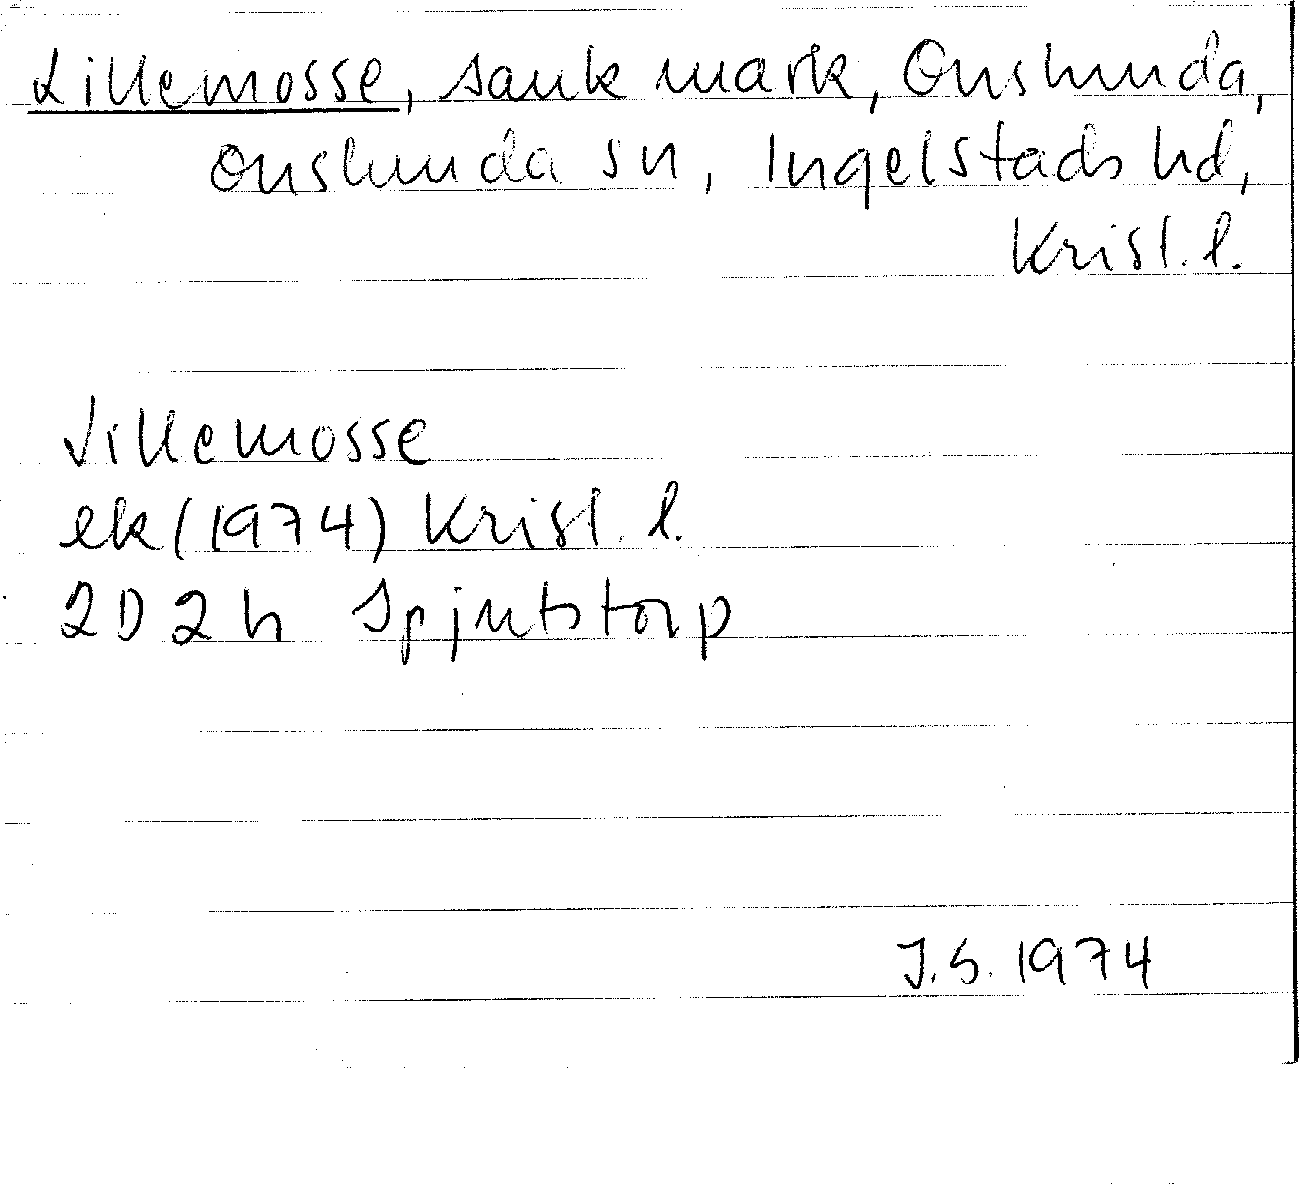 Lillemosse, sank mark, Onslunda,
Onslunda sn, Ingelstads hd,
Krist. l.
Lillemosse
ek (1974) Krist. l.
2D 2h Spjutstorp
J.S. 1974